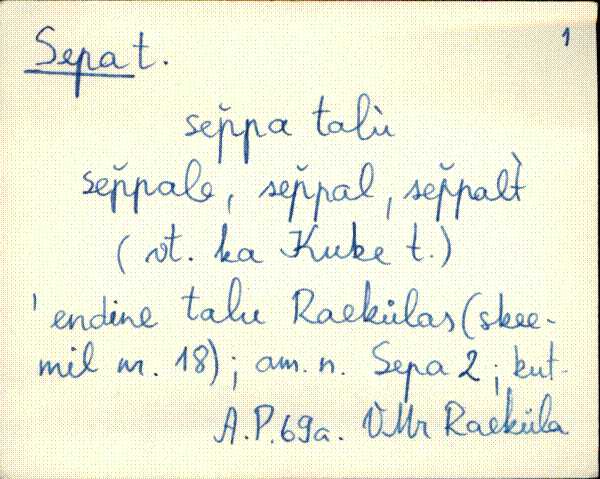 Sepa t. 1
sep̆pa talù
sep̆pale, sep̆pal, sep̆palt̀
(vt. ka Kuke t.)
'endine talu Raekülas (skee-
mil nr. 18); am. n. Sepa 2; kut.
A.P. 69a. VMr Raeküla